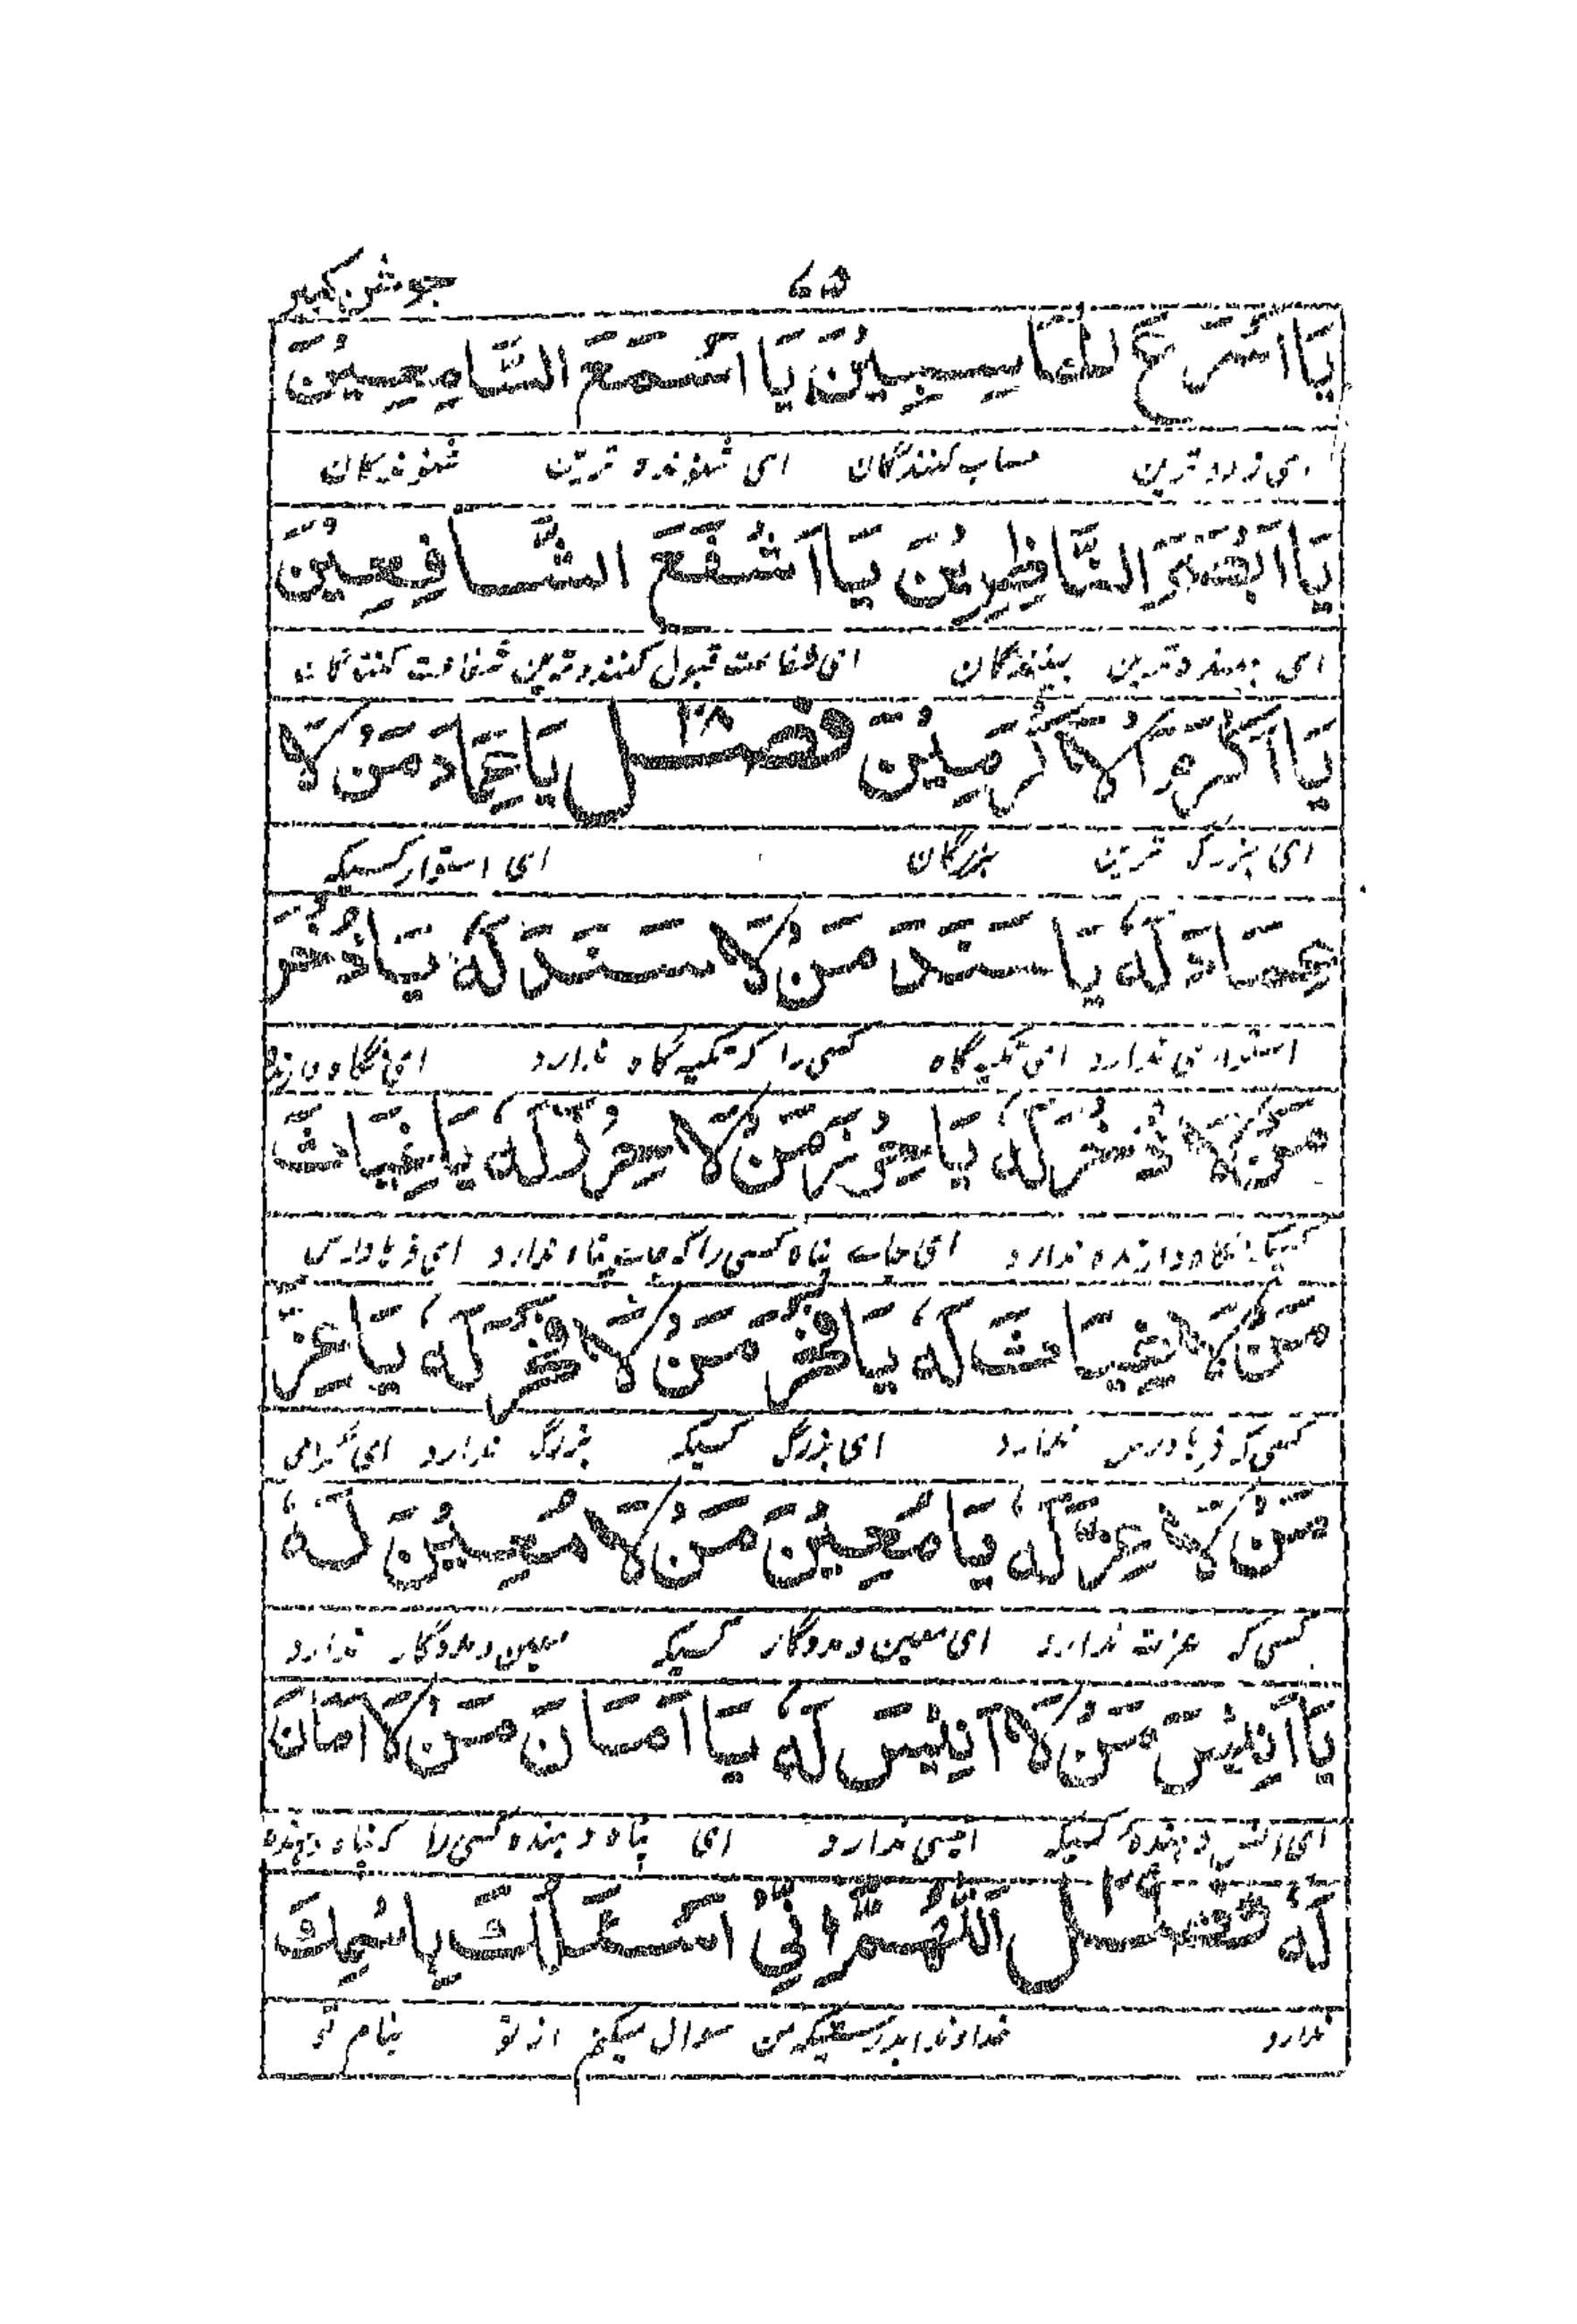 ۶۵ جوشن کبیر
يَا اَسْرَعَ الْحَاسِبِيْنَ يَا اَسْمَعَ السَّامِعِيْنَ
ای زود ترین حساب کنندگان ای شنونده ترین شنوندگان
يَا اَبْصَرَ النَّاظِرِيْنَ يَا اَشْفَعَ الشَّافِعِيْنَ
ای بیننده ترین بینندگان ای شفاعت قبول کننده ترین شفاعت کنندگان
يَا اَكْرَمَ الْاَكْرَمِيْنَ فصل ۲۸ يَا عِمَادَ مَنْ لَا
ای بزرگ ترین بزرگان ای استوار کسیکه
عِمَادَ لَهُ يَا سَنَدَ مَنْ لَا سَنَدَ لَهُ يَا ذُخْرَ
استواری ندارد ای تکیه گاه کسی را که تکیه گاه ندارد ای نگاه دارنده
مَنْ لَا ذُخْرَ لَهُ يَا حِرْزَ مَنْ لَا حِرْزَ لَهُ يَا غِيَاثَ
کسیکه نگاه دارنده ندارد ای جاے پناه کسی را که جاے پناه ندارد ای فریادرس
مَنْ لَا غِيَاثَ لَهُ يَا فَخْرَ مَنْ لَا فَخْرَ لَهُ يَا عِزَّ
کسی که فریادرس ندارد ای بزرگ کسیکه بزرگ ندارد ای گرامی
مَنْ لَا عِزَّ لَهُ يَا مُعِيْنَ مَنْ لَا مُعِيْنَ لَهُ
کسی که عزت ندارد ای معین و مددگار کسیکه معین و مددگار ندارد
يَا اَنِيْسَ مَنْ لَا اَنِيْسَ لَهُ يَا اَمَانَ مَنْ لَا اَمَانَ
ای انس دهنده کسیکه انیسی ندارد ای پناه دهنده کسی را که پناه دهنده
لَهُ فصل ۲۹ اَللّٰهُمَّ اِنِّيْ اَسْئَلُكَ بِاسْمِكَ
ندارد خداوندا بدرستیکه من سوال میکنم از تو بنام تو